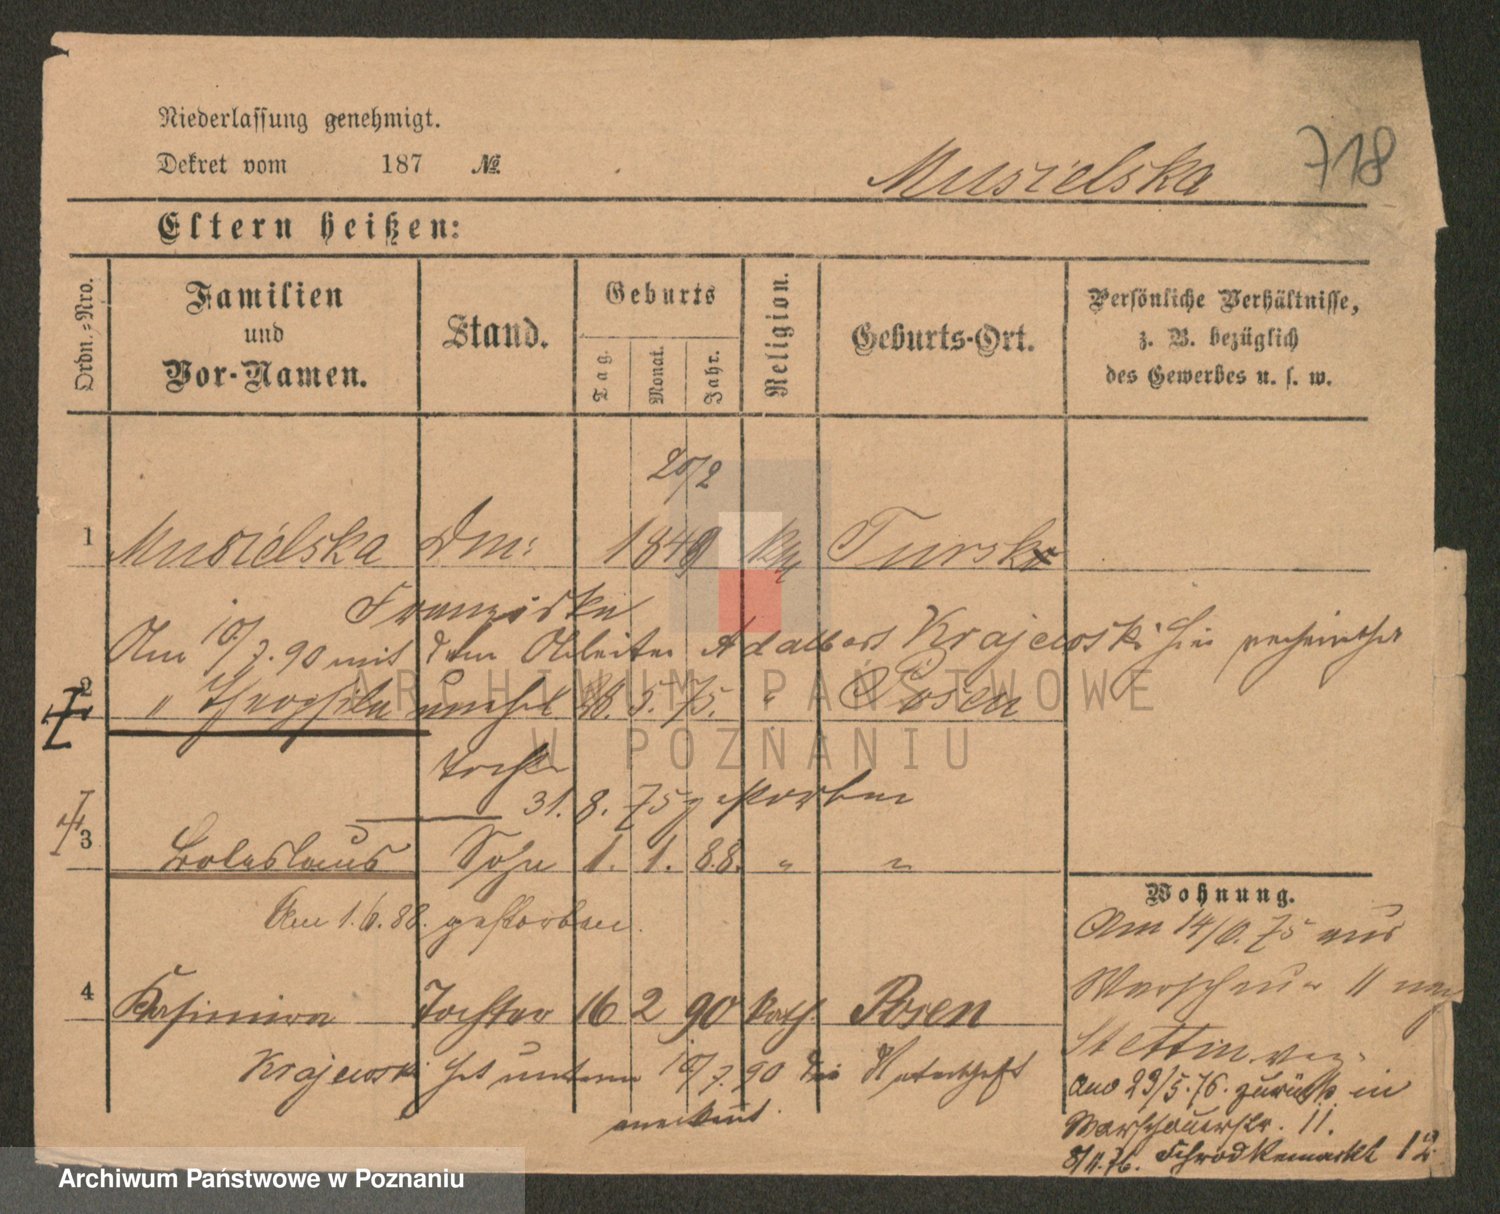 Niederlassung genehmigt.
Dekret vom 187 №
Musielska 718
Eltern heißen:
Ordn.-Nro.
Familien
und
Vor-Namen.
Stand.
Geburts
Tag.
Monat.
Jahr.
Religion.
Geburts-Ort.
Persönliche Verhältnisse,
z. B. bezüglich
des Gewerbes u. s. w.
20/2
1 Musielska Dm: 1849 kth Tursko
Franziska
Am 10/7.90 mit dem Arbeiter Adalbert Krajewski hier verheirathet
2 " Theophila unehel 5. 75. " Posen
Tochter
31. 8. 75 gestorben
3 Boleslaus Sohn 1. 1. 88. " "
Am 1.6.88. gestorben.
4 Kasimira Tochter 16 2 90 kath. Posen
Krajewski hat unterm 10/7.90 die Vaterschaft
anerkannt.
Wohnung.
Am 14/6.75 aus
Warschauer 11 nach
Stettin
23/5.76. zurück in
Warschauerstr. 11.
8/11.76. Schrodkamarkt 12
ARCHIWUM PAŃSTWOWE
W POZNANIU
Archiwum Państwowe w Poznaniu